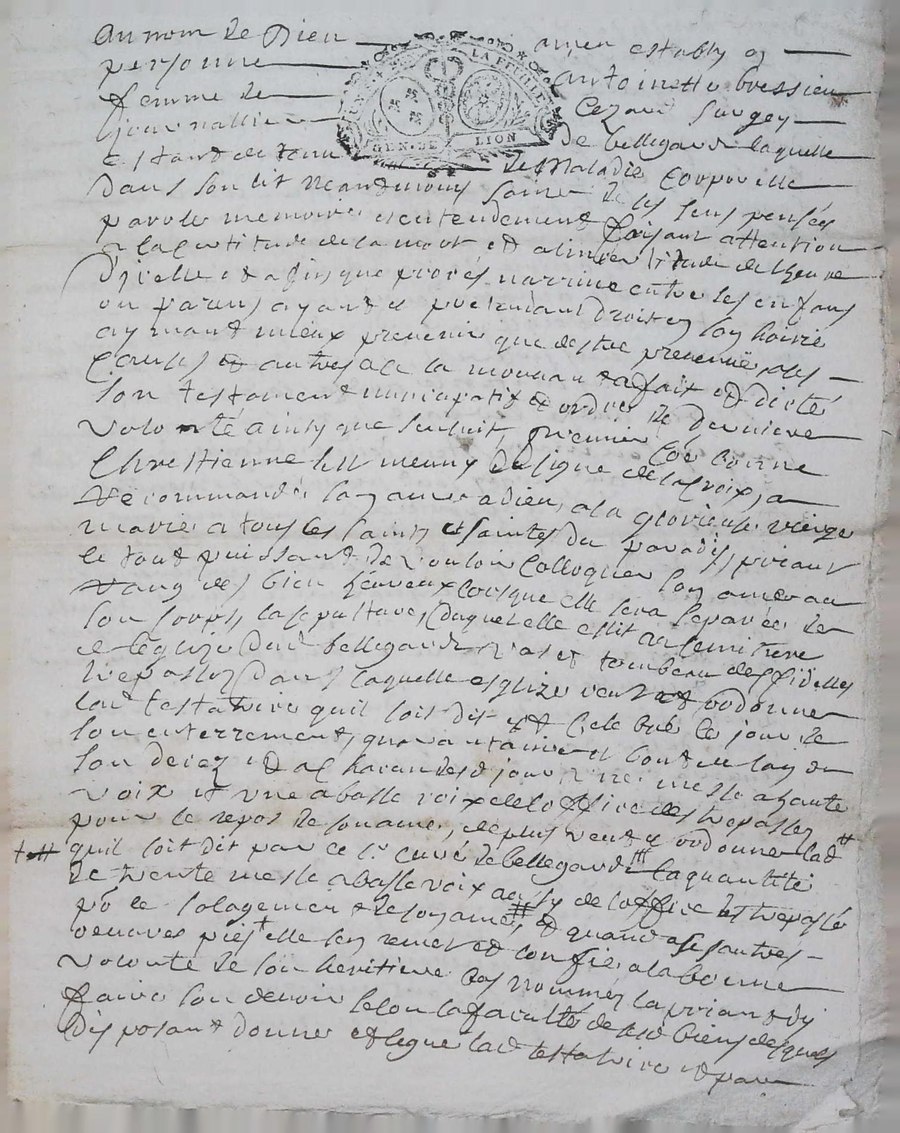 au nom de Dieu amen establi en
personne Antoinette bressieu
femme de Cezard Surgey
journallier de bellegarde laquelle
estant detenu de Maladie Corporelle
dans son lit neantmoins saine de ses sens pensée
parolle memoire et entendement faisant attention
a la certitude de la mort et a lincertitude de lheure
dicelle et afin que procés narrive entre les enfans
ou parens ayant et pretendant droits en son hoirie
aymant mieux prevenir que destre prevenuë ases
Causes et autres a ce la mouvant a fait et dicté
son testament noncupatif et ordre de derniere
volonté ainsy que sensuit, premier comme bonne
Chrestienne sest munny du signe de la Croix, a
recommandé son ame a dieu, a la glorieuse vierge
marie a tous les saints et saintes du paradis, priant
le tout puissant de vouloir Colloquer son ame au
rang des bien heureux lorsque elle sera separée de
son corps, la sepulture duquel elle eslit au Cemitiere
de leglize dud bellegarde vas et tombeau des fidelles
trepassez dans laquelle esglize veut et ordonne
lad testatrice quil soit dit et Celebré le jour de
son enterrement, quarantaine et bout de lan de
son decez et a Chacun desd jours une messe a haute
voix et une a basse voix de loffice des trepassez
pour le repos de son ame, de plus veut et ordonne lad
quil soit dit par ce sr curé de bellegarde la quantité
de trente messe a basse voix aussy de loffice des trepassé
po le solagement de son ame, et quand a ses autres
oeuvres pies elle sen remet et confie a la bonne
volonte de son heritiere bas nommée la priant dy
faire son devoir selon la faculté de sesd biens desquels
disposant donne et legue lad testatrice et par
GEN·DE LION
LA FEUILLE